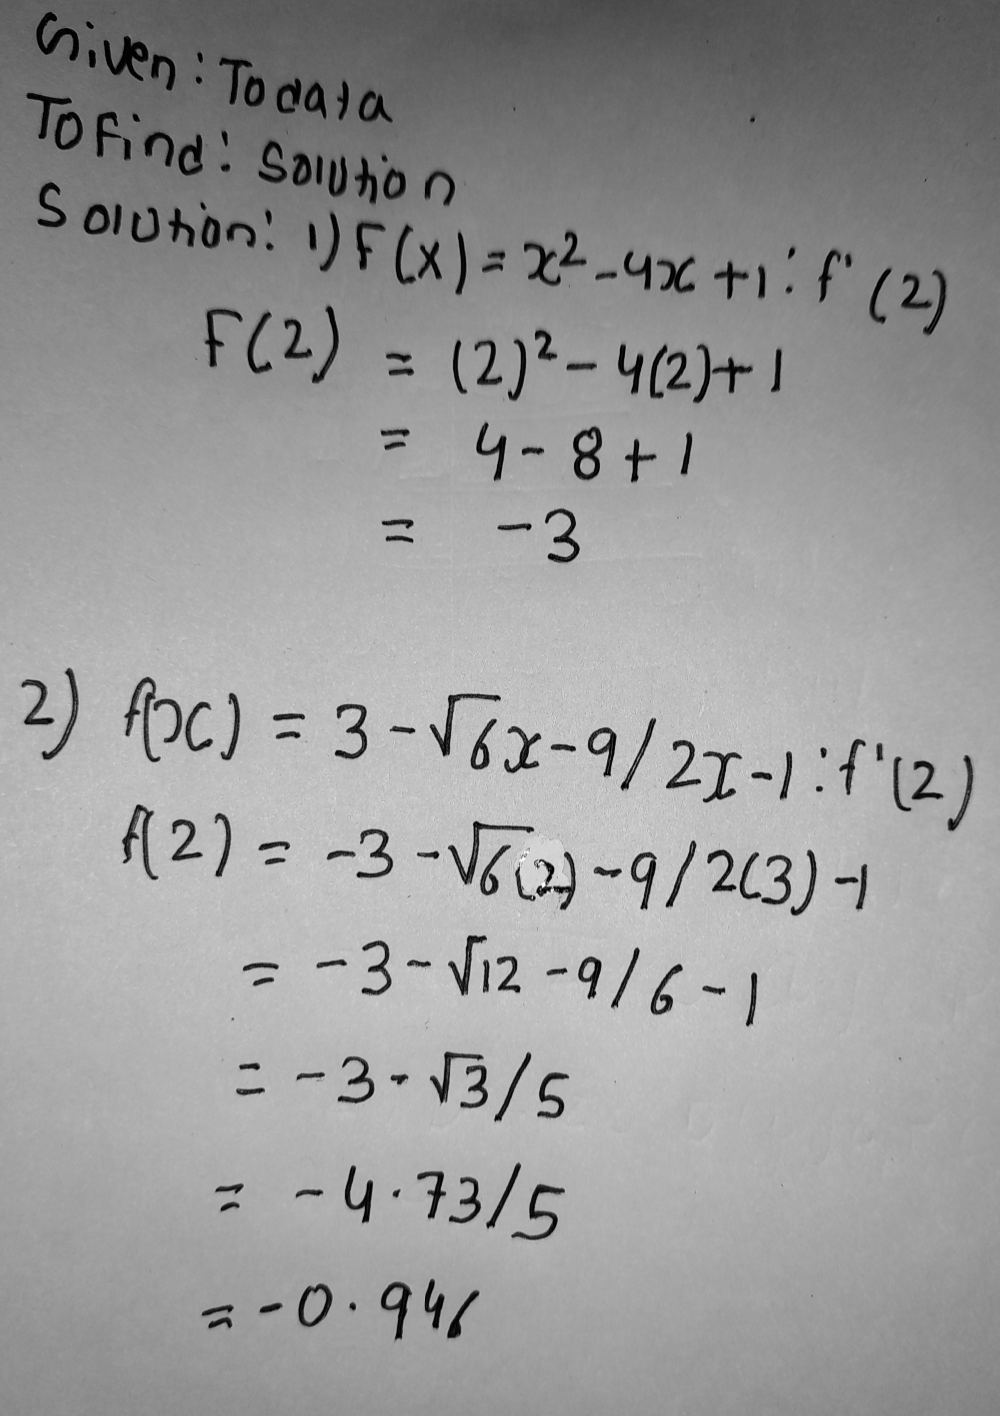 Given: To data
To Find: Solution
Solution: 1) F(x) = x² - 4x + 1 : f'(2)
F(2) = (2)² - 4(2) + 1
= 4 - 8 + 1
= -3
2) f(x) = 3 - √6x - 9 / 2x - 1 : f'(2)
f(2) = -3 - √6(2) - 9 / 2(3) - 1
= -3 - √12 - 9 / 6 - 1
= -3 - √3 / 5
= -4.73 / 5
= -0.946